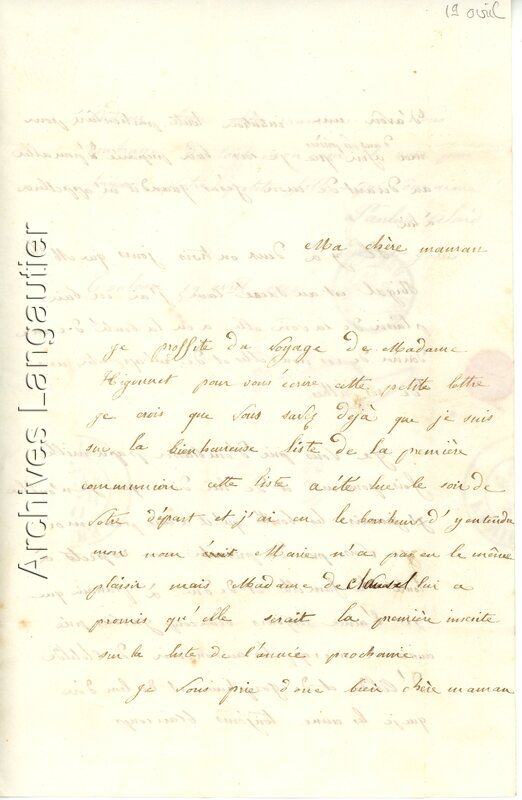 19 avril
Ma chère maman
je proffite du voyage de Madame
Higonnet pour vous écrire cette petite lettre
je crois que vous savez dejà que je suis
sur la bienheureuse liste de la première
communion cette liste a été lue le soir de
votre départ et j'ai eu le bonheur d'y entendre
mon nom écrit Marie n'a pas eu le même
plaisir mais Madame de clausel lui a
promis qu'elle serait la première inscrite
sur la liste de l'année prochaine
Je vous prie donc bien chère maman
Archives Langautier